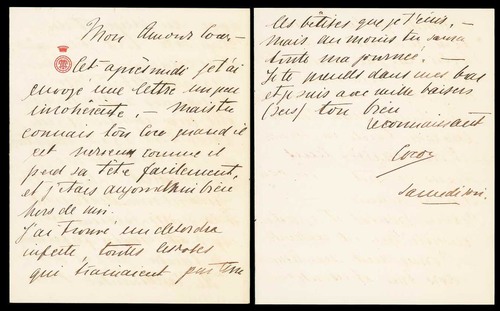 Mon Amour Coco, —
Cet après midi je t'ai
envoyé une lettre un peu
incohérente, — mais tu
connais ton Coco quand il
est nerveux comme il
perd sa tête facilement,
et j'étais aujourd'hui bien
hors de moi.
J'ai trouvé un désordre
infecte, toutes les
qui traînaient par terre
les bêtises que je t'écris, —
mais au moins tu sauras
toute ma journée. —
Je te prends dans mes bras
et je suis avec mille baisers
ton bien
reconnaissant
Coco
Samedi soir.